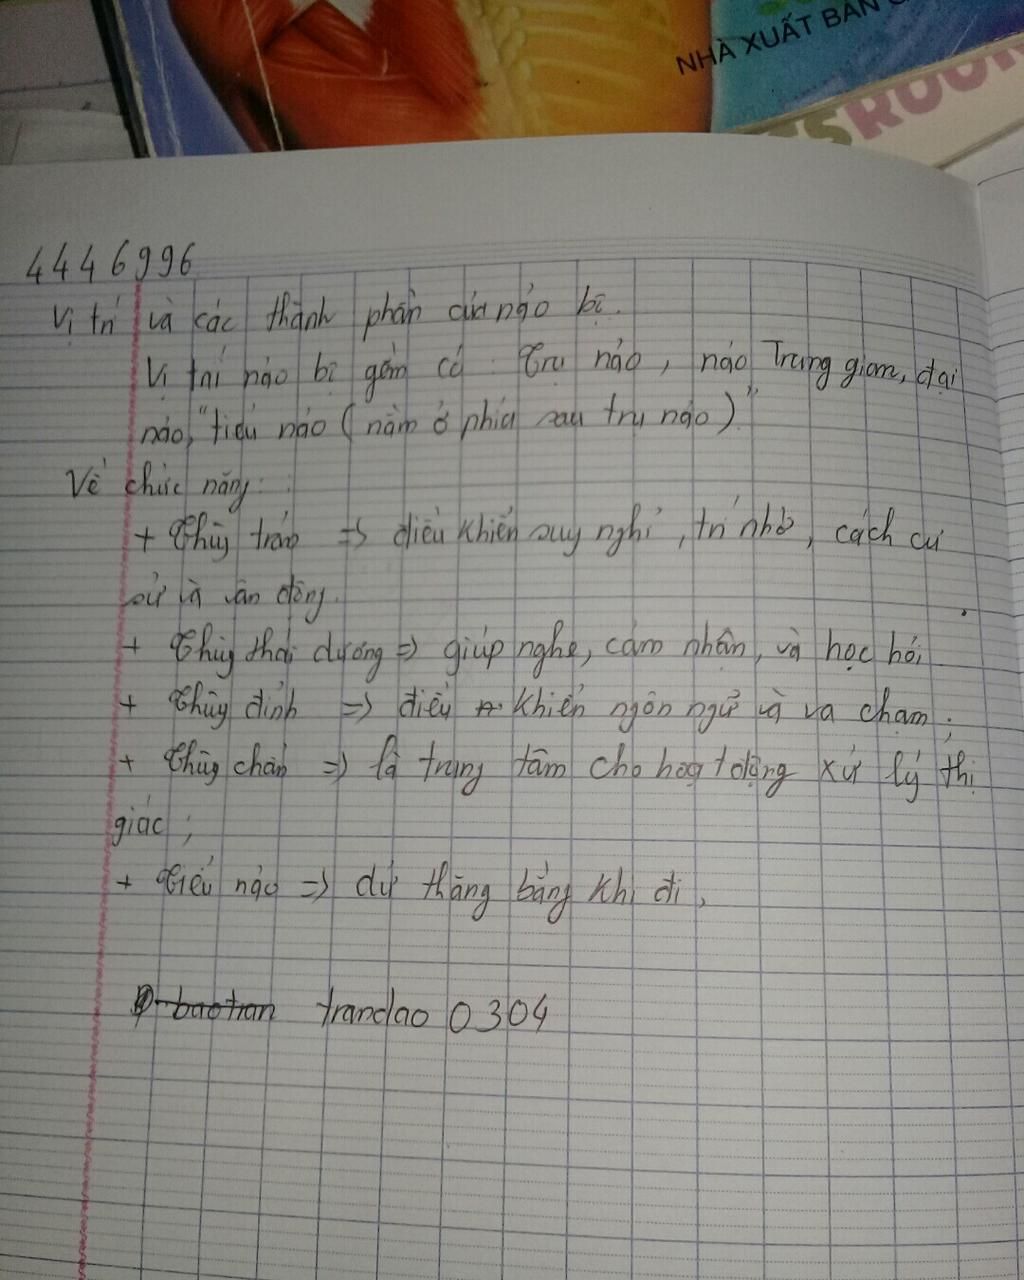 NHÀ XUẤT BẢN G
ESROOM
4446996
Vị trí và các thành phần của não bộ.
Vị trí não bộ gồm có: Trụ não, não Trung gian, đại
não, "tiểu não (nằm ở phía sau trụ não)"
Về chức năng:
+ Thùy trán => điều khiển suy nghĩ, trí nhớ, cách cư
xử và vận động.
+ Thùy thái dương => giúp nghe, cảm nhận, và học hỏi
+ Thùy đỉnh => điều khiển ngôn ngữ và va chạm;
+ Thùy chẩm => là trung tâm cho hoạt động xử lý thị
giác;
+ Tiểu não => dự thăng bằng khi đi,
baotran trandao 0304